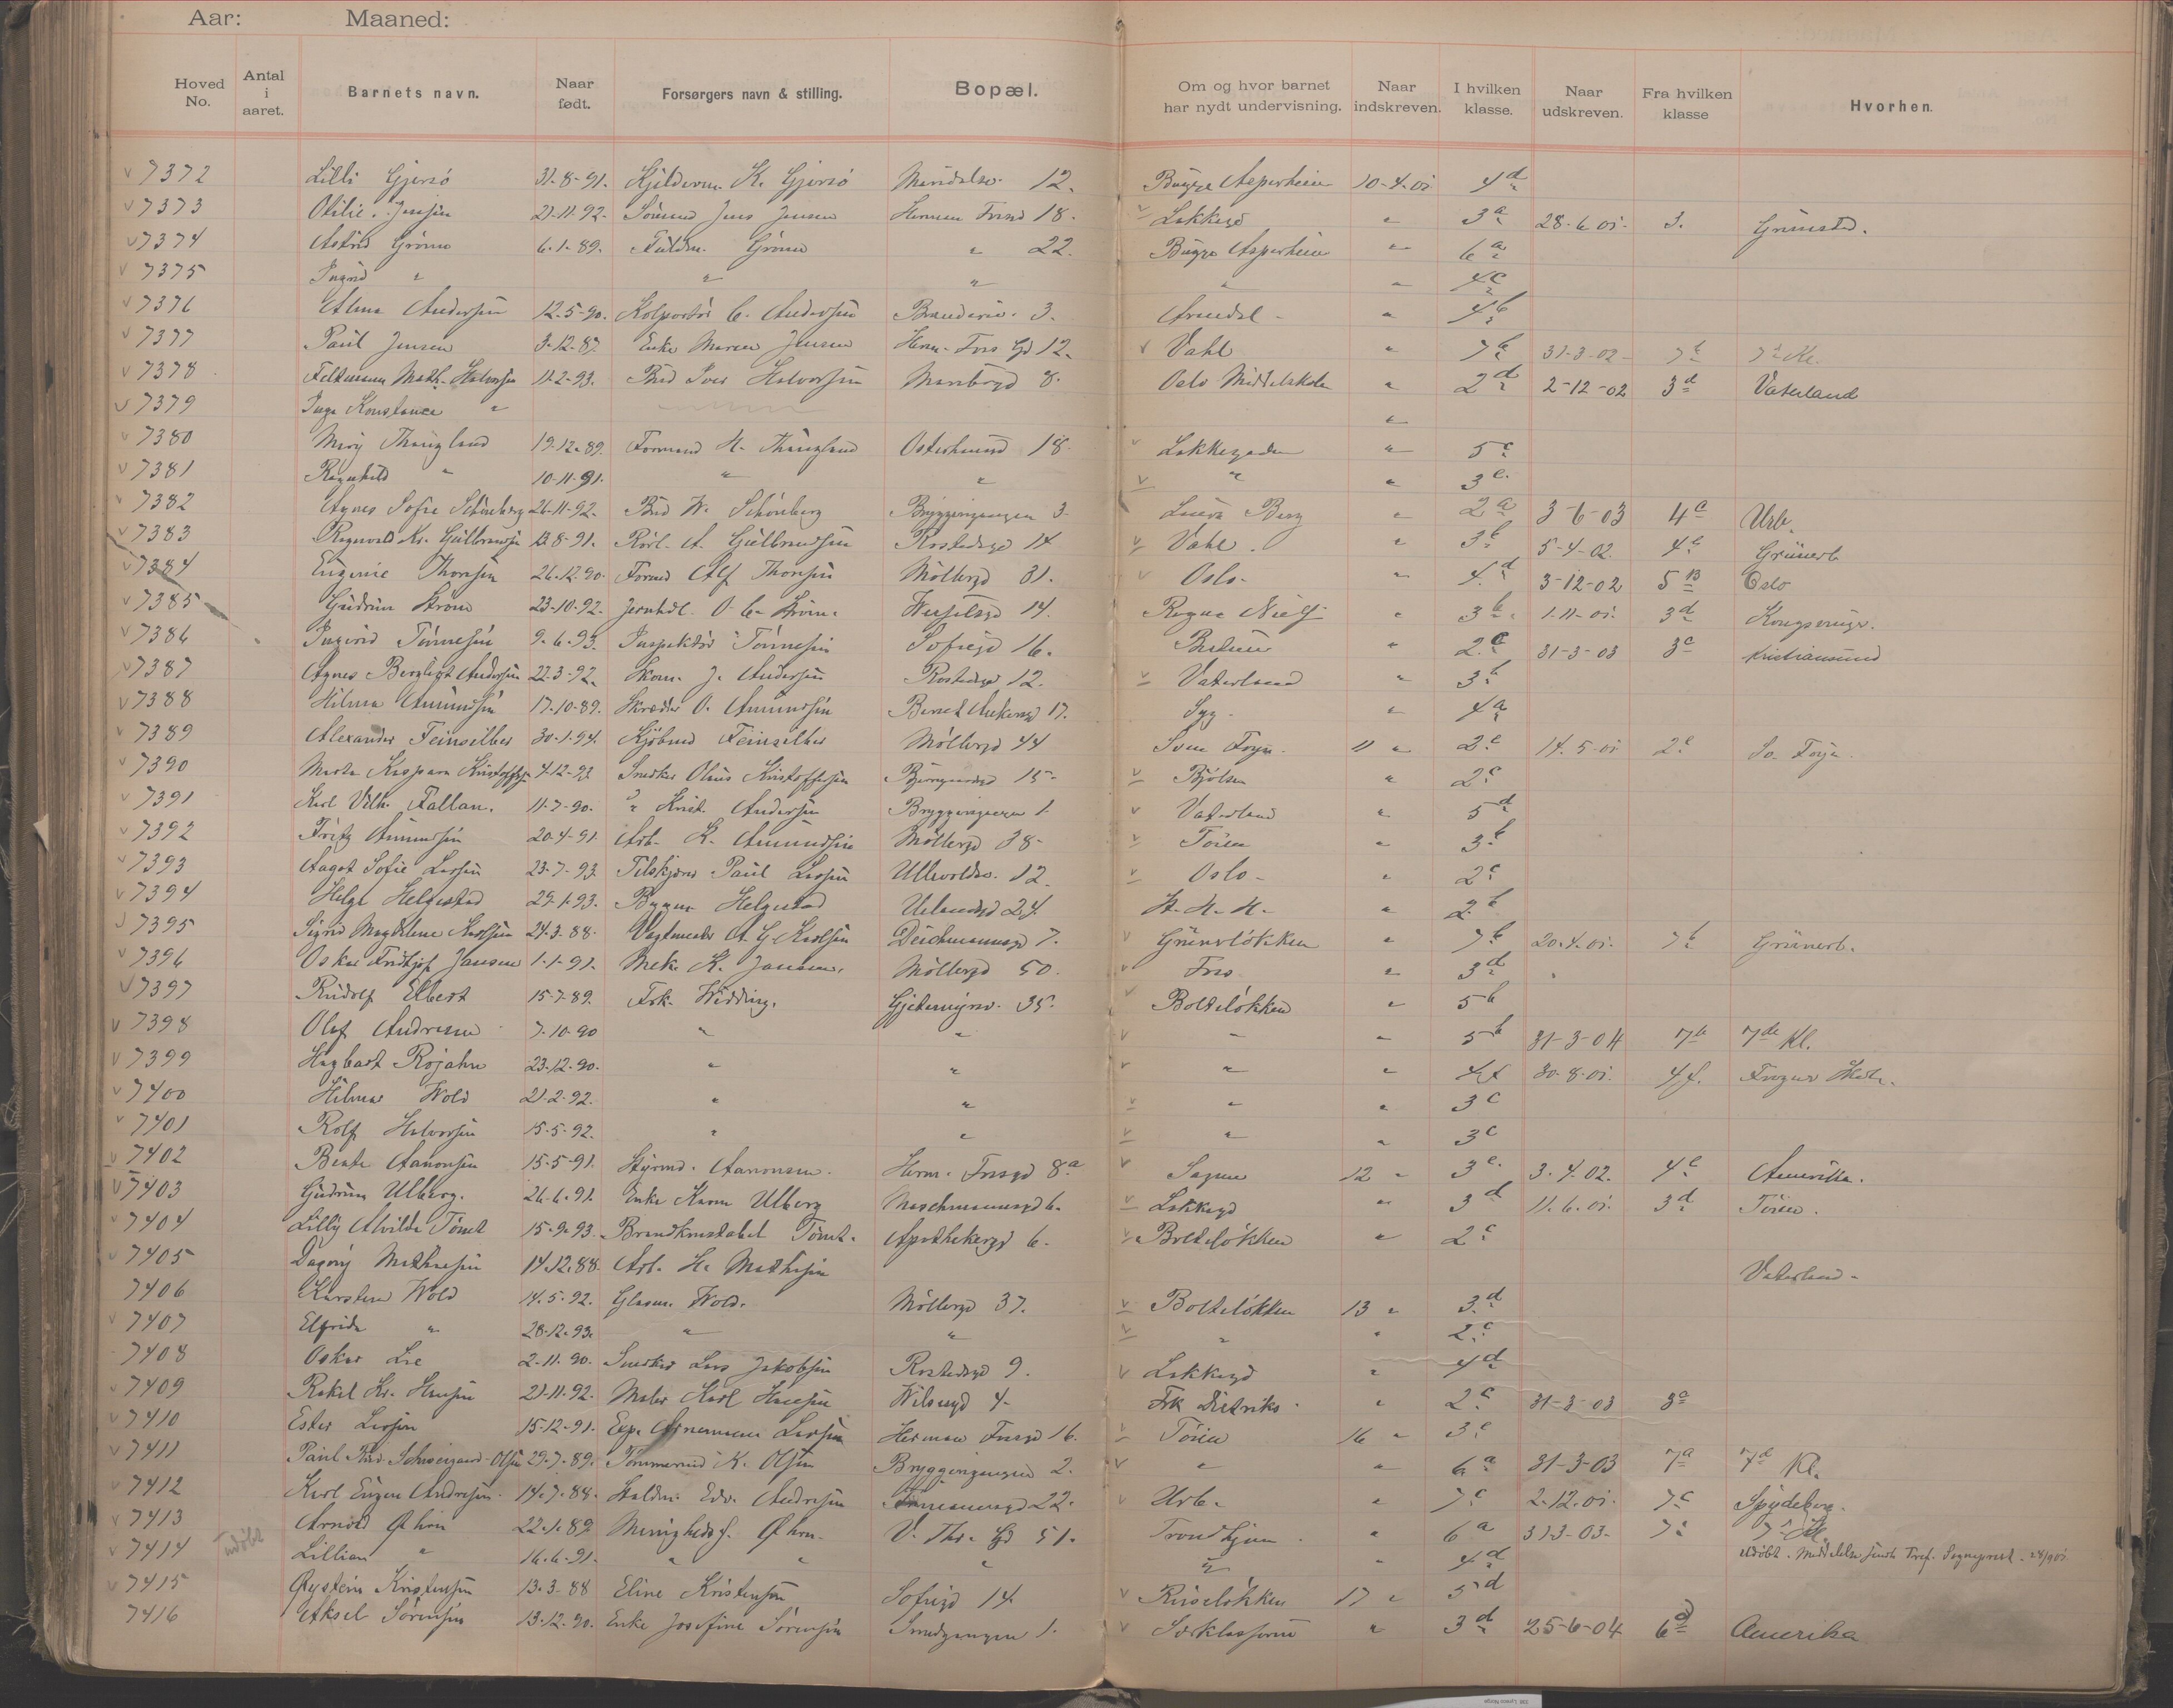 Aar: Maaned:
Hoved No. Antal i aaret. Barnets navn. Naar født. Forsørgers navn & stilling. Bopæl. Om og hvor barnet har nydt undervisning. Naar indskreven. I hvilken klasse. Naar udskreven. Fra hvilken klasse Hvorhen.
7372 Lilli Gjersö 31-8-91. K. Gjersö 12. Bugge Asperheim 10-4-01 4d
7373 Otilie Jensen 21-11-92. Sömand Jens Jensen Herman Fossgd 18. Lakkegd " 3a 28-6-01. 3. Grimstad.
7374 Astrid Gröner 6-1-89. Fuldm. Gröner " 22. Bugge Asperheim " 6a
7375 Ingrid " " " " " 4c
7376 Alma Andersen 12-5-90. Kolportör C. Andersen 3. Arendal " 4b
7377 Paul Jensen 3-12-87 Enke Maren Jensen Herm. Foss Gd 12. Vahl " 7b 31-3-02 7b 7de Kl.
7378 Math. Halvorsen 11-2-93. Bud Iver Halvorsen 8. Oslo Middelskole " 2d 2-12-02 3d Vaterland
7379 Inga Konstance " "
7380 19-12-89. Formand H. 18 Lakkegaden " 5c
7381 Ragnhild " 10-11-91. " " " " 3c
7382 Agnes Sofie Schöneberg 26-11-92. Bud W. Schöneberg Bryggergangen 3 Berg " 2a 3-6-03 4a Urb.
7383 Ragnvald Kr. Gulbrandsen 13-8-91. Rörl. A. Gulbrandsen Rostedsgd 14 Vahl. " 3b 5-4-02. 4c Grünerl.
7384 Eugenie Thorsen 26-12-90. Formd Alf Thorsen Möllergd 31. Oslo " 4d 3-12-02 5B Oslo
7385 Gudrun Ström 23-10-92. Jernhdl. O. C. Ström. Wesselsgd 14. Ragna Niels " 3b 1-11-01. 3d Kongsvinger.
7386 Ingrid Tönnesen 9-6-93. Inspektör Tönnesen Sofiegd 16. " 2c 31-3-03 3c Kristiansund
7387 Agnes Bergljot Andersen 22-3-92. Skom. J. Andersen Rostedsgd 12. Vaterland " 3b
7388 Hilma Amundsen 17-10-89. Skrædder O. Amundsen Bernt Ankersgd 17. Syg. " 4a
7389 Alexander Feinsilber 30-1-94. Kjöbmd Feinsilber Möllergd 44 Sven Foyn. 11 " 2c 14-5-01 2c Sv. Foyn.
7390 Marta Kaspara Kristoffersen 4-12-92 Snedker Olaus Kristoffersen 15. Bjölsen " 2c
7391 Karl Vilh. Fallan. 11-7-90. " Krist. Andersen Bryggergangen 1. Vaterland " 5d
7392 Fritz Amundsen 20-4-91 Arb. K. Amundsen Möllergd 38. Töien " 3b
7393 Aagot Sofie Larsen 23-7-93. Paul Larsen Ullevoldsv. 12. Oslo " 2c
7394 Helga Helgestad 29-1-93. Bygm. Helgestad Uelandsgd 24. H. H. H. " 2b
7395 Sigrid Magdalene Karlsen 24-3-88. Vagtmester A. G. Karlsen Deichmannsgd 7. Grünerlökken " 7b 20-4-01. 7b Grünerl.
7396 Oskar Fridtjof Jansen 1-1-91. Mek. K. Jansen. Möllergd 50. Foss " 3d
7397 Rudolf Elbert 15-7-89. Frk. Widding. Gjetemyrsv. 35. Bolteløkken " 5b
7398 Olaf Andresen 7-10-90 " " " " 5b 31-3-04 7b 7de Kl.
7399 Hagbart Rojahn 23-12-90. " " " " 4f 30-8-01. 4f. Frogner Skole.
7400 Hilmar Wold 21-2-92. " " " " 3c
7401 Rolf Halvorsen 15-5-92. " " " " 3c
7402 Aanonsen 15-5-91. Styrmd. Aanonsen. Herm. Fossgd 8a Sagene 12 " 3c 3-4-02. 4c Amerika.
7403 Gudrun Ulberg. 26-6-91. Enke Ulberg Maschmannsgd 6. Lakkegd " 3d 11-6-01. 3d Töien.
7404 Lilly Alvilde 15-9-93. Brandkonstabel Apothekergd 6. Bolteløkken " 2c
7405 Dagny Mathisen 14-12-88. Arb. H. Mathisen Vaterland
7406 Karsten Wold 14-5-92. Glasm. Wold. Möllergd 37. Bolteløkken 13 " 3d
7407 Elfrida " 28-12-93. " " " " 2c
7408 Oskar Lie 2-11-90. Snedker Lars Jakobsen Rostedsgd 9. Lakkegd " 4d
7409 Rakel Kr. Hansen 21-11-92. Maler Karl Hansen Wilsesgd 4. Frk Dietriks " 2c 31-3-03 3a
7410 Ester Larsen 15-12-91. Exp. Larsen Herman Fossgd 16. Töien 16 " 3c
7411 Paul Schweigaard Olsen 29-7-89. Tömmermd K. Olsen Bryggergangen 2. " " 6a 31-3-03 7a 7de Kl.
7412 Karl Eugen Andresen 14-7-88. Edv. Andresen 22. Urb. " 7c 2-12-01. 7c Spydeberg.
7413 Arnold 22-1-89 Menighedsf. V. Thr. Gd 51. Trondhjem " 6a 31-3-03. 7c 7de Kl.
7414 Udöbt Lillian " 16-6-91. " " " " " 4d Udöbt. Meddelelse sendt Tref. Sogneprest. 28/9 01.
7415 Øystein Kristensen 13-3-88 Eline Kristensen Sofiegd 14 Ruseløkken 17 " 5d
7416 Aksel Sörensen 13-12-90. Enke Josefine Sörensen Smedgangen 1. Særklasserne " 3d 25-6-04 6d Amerika